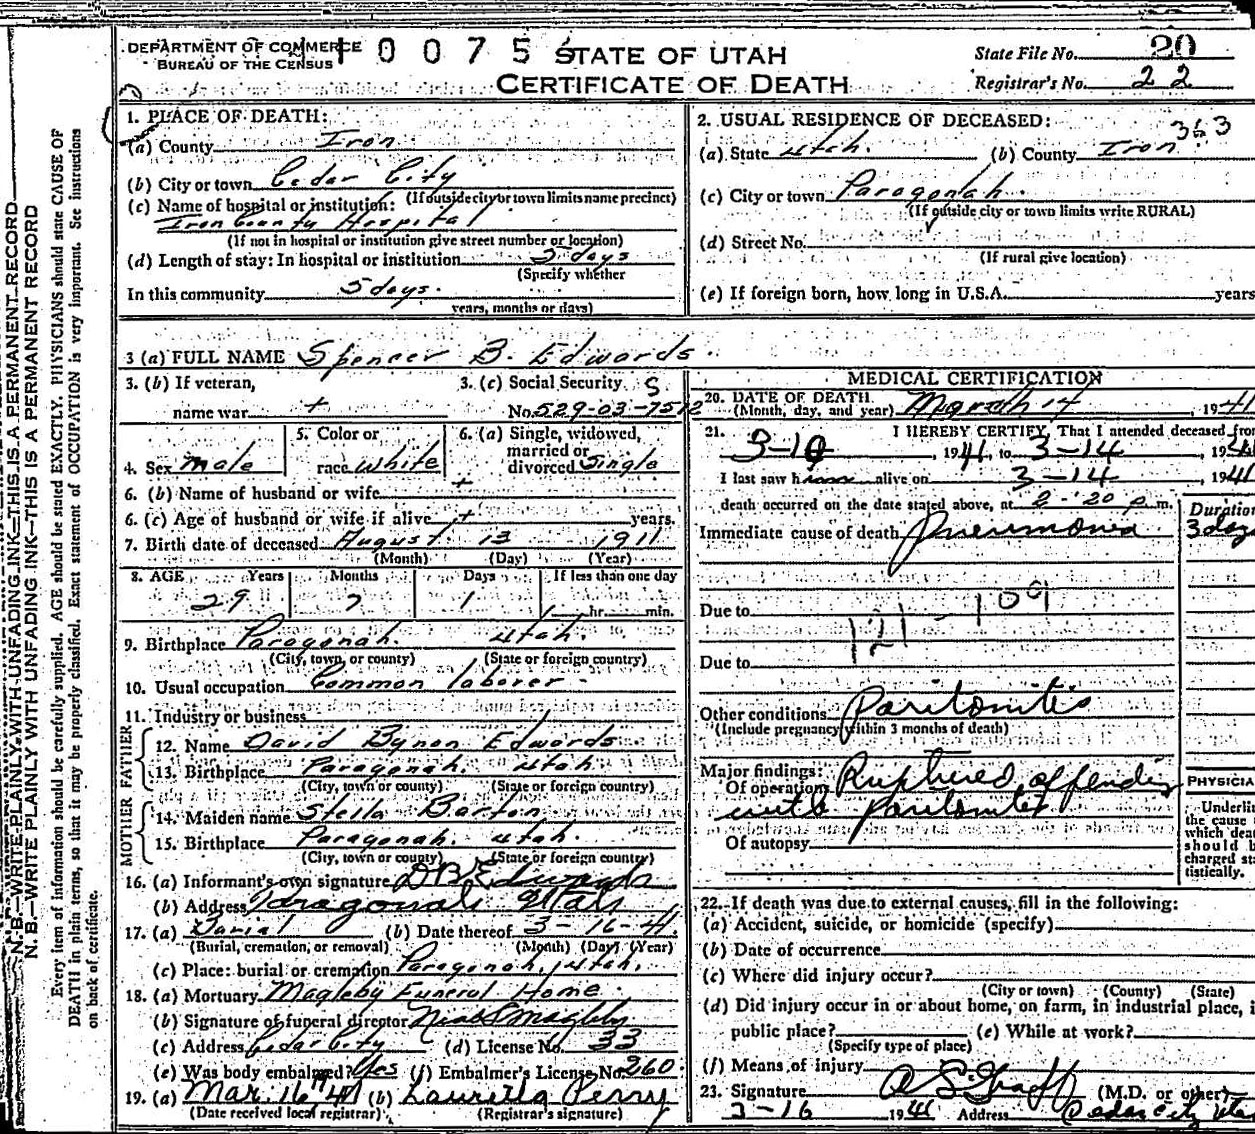 DEPARTMENT OF COMMERCE
BUREAU OF THE CENSUS
0 0 7 5
STATE OF UTAH
CERTIFICATE OF DEATH
State File No. 20
Registrar's No. 22
N. B.—WRITE PLAINLY WITH UNFADING INK—THIS IS A PERMANENT RECORD
N. B.—WRITE PLAINLY WITH UNFADING INK—THIS IS A PERMANENT RECORD
Every item of information should be carefully supplied. AGE should be stated EXACTLY. PHYSICIANS should state CAUSE OF
DEATH in plain terms, so that it may be properly classified. Exact statement of OCCUPATION is very important. See instructions
on back of certificate.
1. PLACE OF DEATH:
(a) County Iron
(b) City or town Cedar City
(If outside city or town limits name precinct)
(c) Name of hospital or institution:
Iron County Hospital
(If not in hospital or institution give street number or location)
(d) Length of stay: In hospital or institution 5 days
(Specify whether
In this community 5 days.
years, months or days)
2. USUAL RESIDENCE OF DECEASED:
(a) State Utah. (b) County Iron
(c) City or town Paragonah.
(If outside city or town limits write RURAL)
(d) Street No.
(If rural give location)
(e) If foreign born, how long in U.S.A. years
3 (a) FULL NAME Spencer B. Edwards.
3. (b) If veteran,
name war +
3. (c) Social Security S.
No. 529-03-7512
4. Sex male
5. Color or
race white
6. (a) Single, widowed,
married or
divorced single
6. (b) Name of husband or wife +
6. (c) Age of husband or wife if alive + years.
7. Birth date of deceased August 13 1911
(Month) (Day) (Year)
8. AGE Years Months Days If less than one day
29 7 1 hr. min.
9. Birthplace Paragonah. Utah.
(City, town, or county) (State or foreign country)
10. Usual occupation Common laborer
11. Industry or business
FATHER
12. Name David Bynon Edwards
13. Birthplace Paragonah. Utah
(City, town, or county) (State or foreign country)
MOTHER
14. Maiden name Stella Barton
15. Birthplace Paragonah. Utah.
(City, town or county) (State or foreign country)
16. (a) Informant's own signature D B Edwards
(b) Address Paragonah Utah
17. (a) Burial (b) Date thereof 3-16-41.
(Burial, cremation, or removal) (Month) (Day) (Year)
(c) Place: burial or cremation Paragonah, Utah.
18. (a) Mortuary Magleby Funeral Home.
(b) Signature of funeral director Magleby
(c) Address Cedar City (d) License No. 33
(e) Was body embalmed? Yes (f) Embalmer's License No. 260.
19. (a) Mar. 16 41 (b) Lauretta Perry
(Date received local registrar) (Registrar's signature)
MEDICAL CERTIFICATION
20. DATE OF DEATH
(Month, day, and year) March 14, 1941
21. I HEREBY CERTIFY, That I attended deceased from
3-10, 1941, to 3-14, 1941
I last saw him alive on 3-14, 1941
death occurred on the date stated above, at 2:20 p.m.
Duration
Immediate cause of death Pneumonia 3 day
Due to
121 - 109
Due to
Other conditions Paritonitis
(Include pregnancy within 3 months of death)
Major findings:
Of operation Ruptured appendix
with Paritonitis
Of autopsy
PHYSICIA
Underlin
the cause
which dea
should b
charged sta
tistically.
22. If death was due to external causes, fill in the following:
(a) Accident, suicide, or homicide (specify)
(b) Date of occurrence
(c) Where did injury occur?
(City or town) (County) (State)
(d) Did injury occur in or about home, on farm, in industrial place, i
public place? (e) While at work?
(Specify type of place)
(f) Means of injury
23. Signature (M.D. or other)
3-16 1941 Address Cedar City Utah